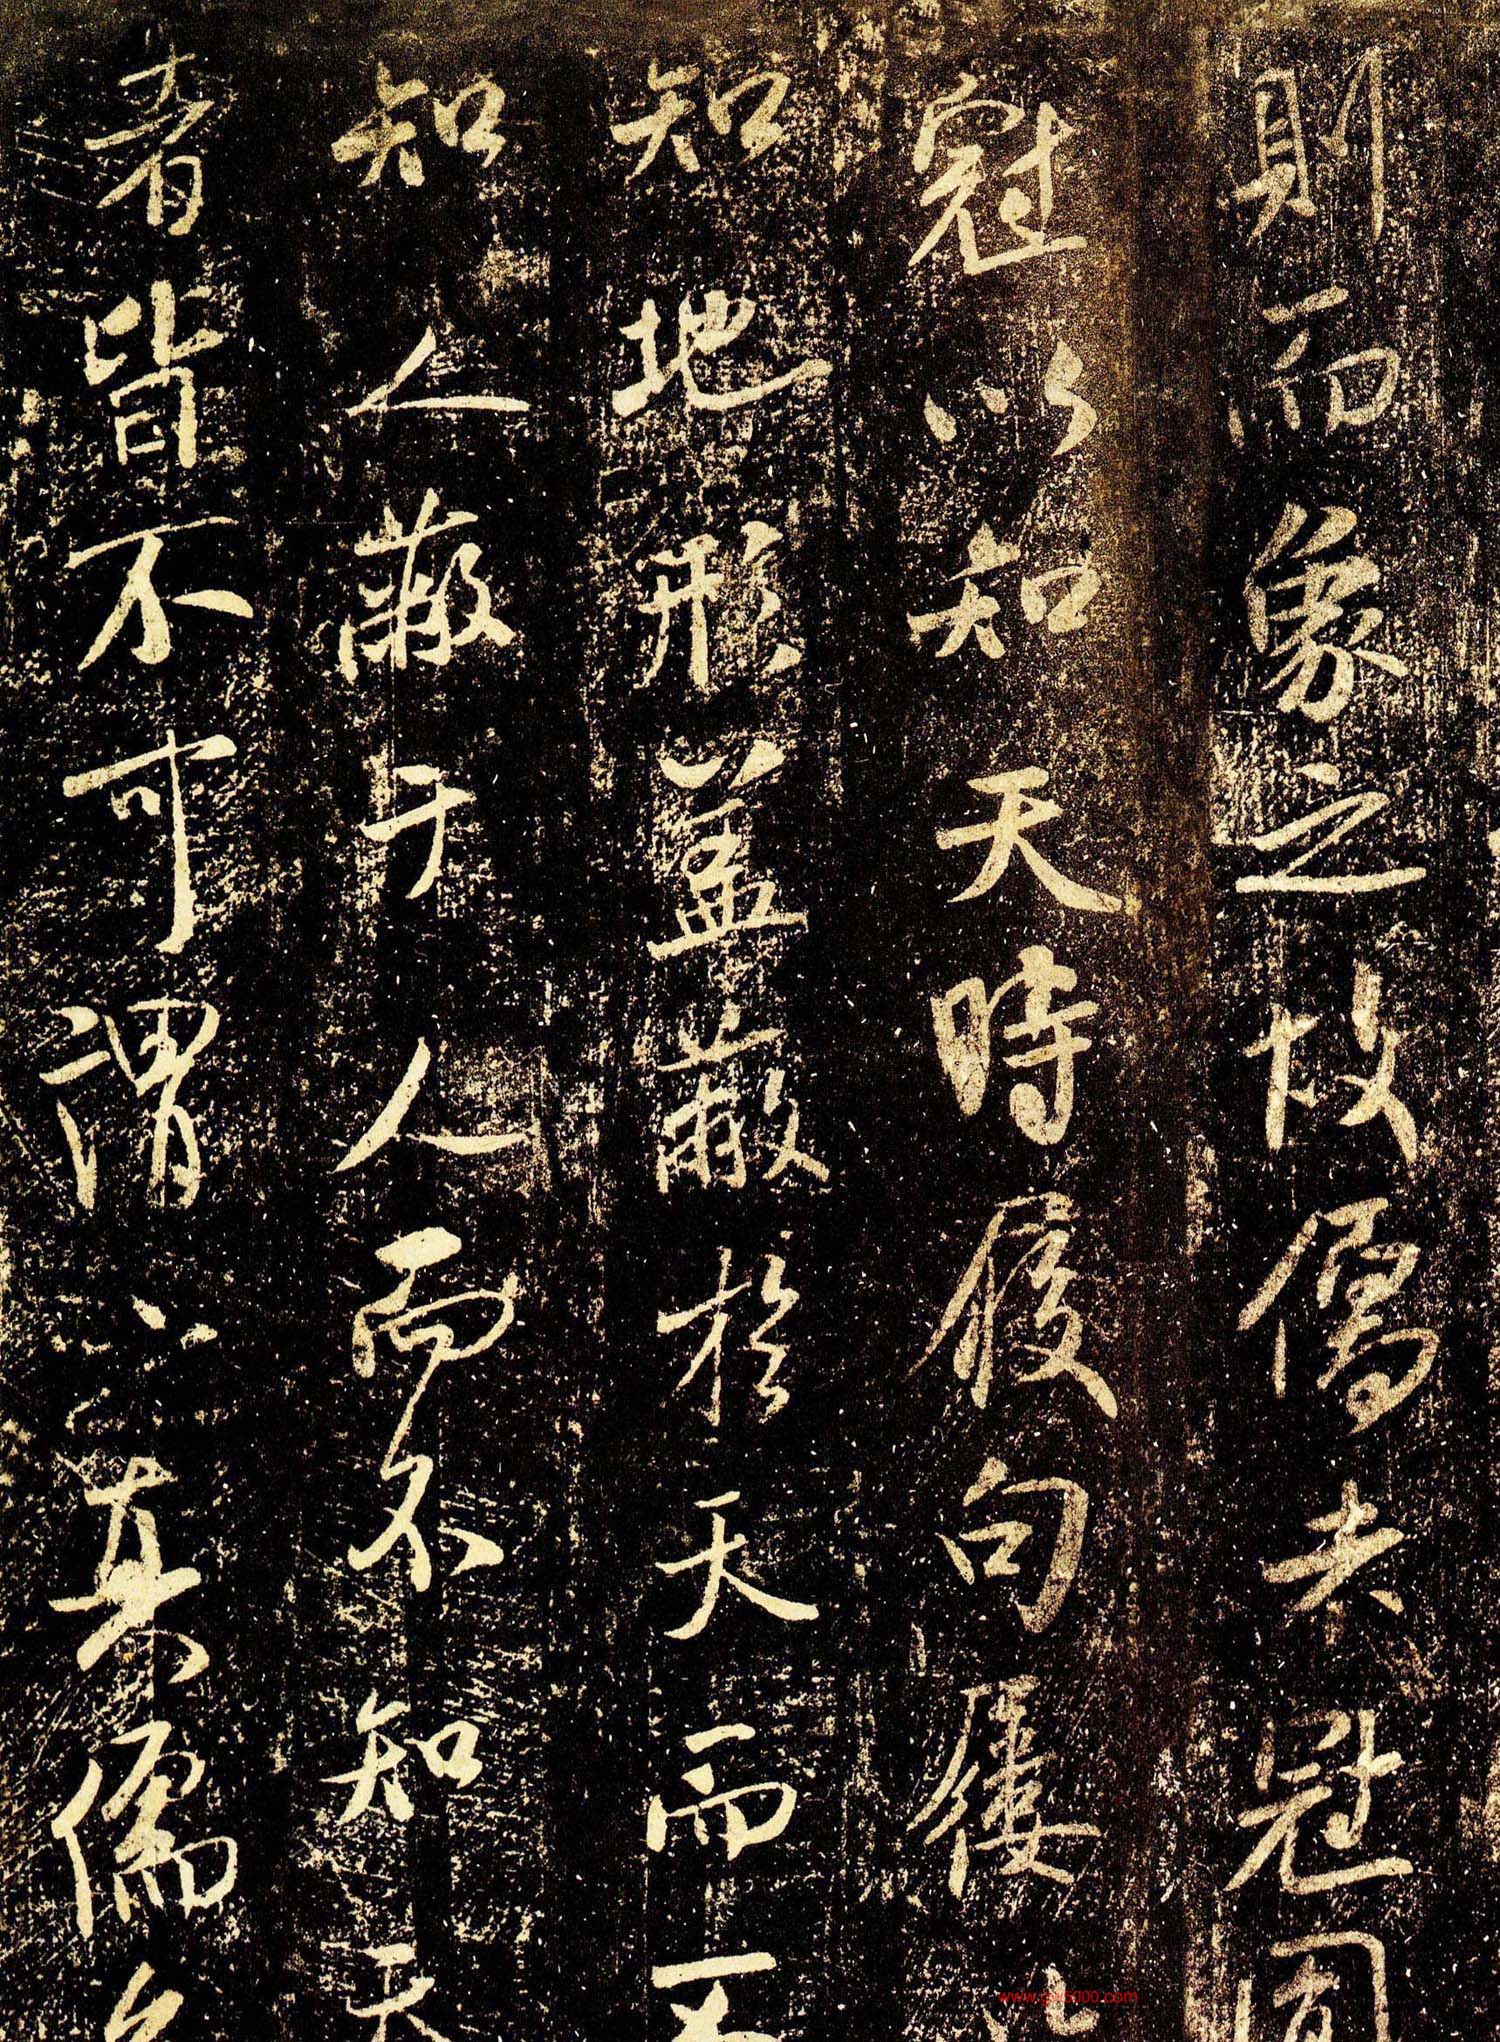 則而象之故儒者冠
冠以知天時履句屨以
知地形蓋蔽於天而不
知人蔽于人而不知天
者皆不可謂之真儒
www.gw5000.com